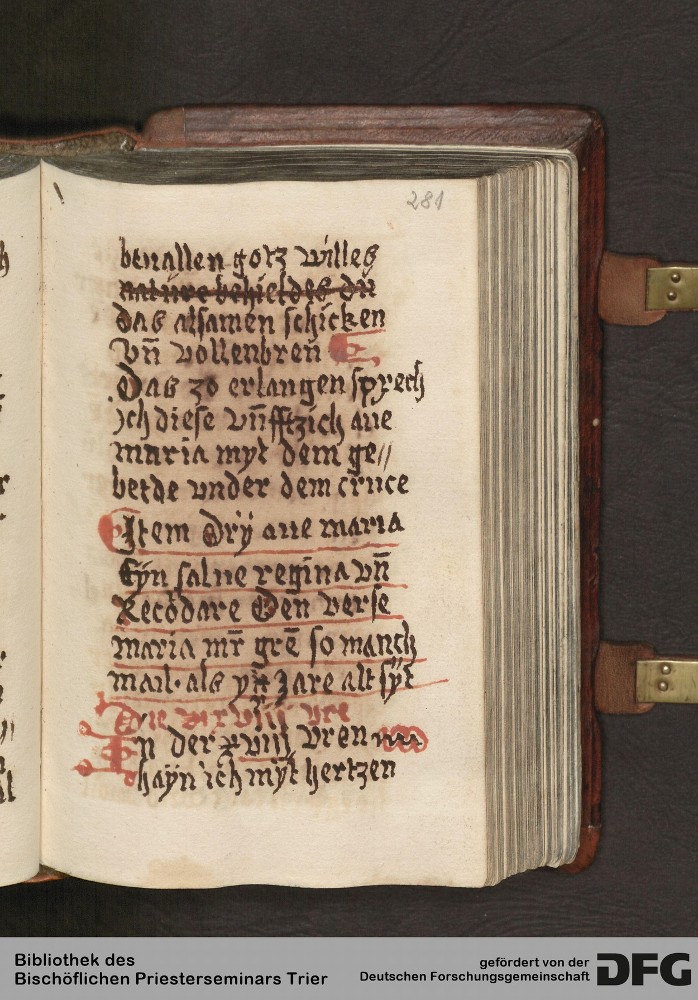 281
ben allen gotz willes
nature behieldes du
das alsamen schicken
vn̄ vollenbren̄
Das zo erlangen sprech
ich diese vn̄fftzich aue
maria myt dem ge//
betde vnder dem cruce
Item Drÿ aue maria
Eÿn salue regina vn̄
Recōdare Den verse
maria mr̄ grē so manch
mail · als yr̄ Jare alt sÿt
Die xxviij vre
In der xxviij vren
hayn ich myt hertzen
Bibliothek des
Bischöflichen Priesterseminars Trier
gefördert von der
Deutschen Forschungsgemeinschaft
DFG